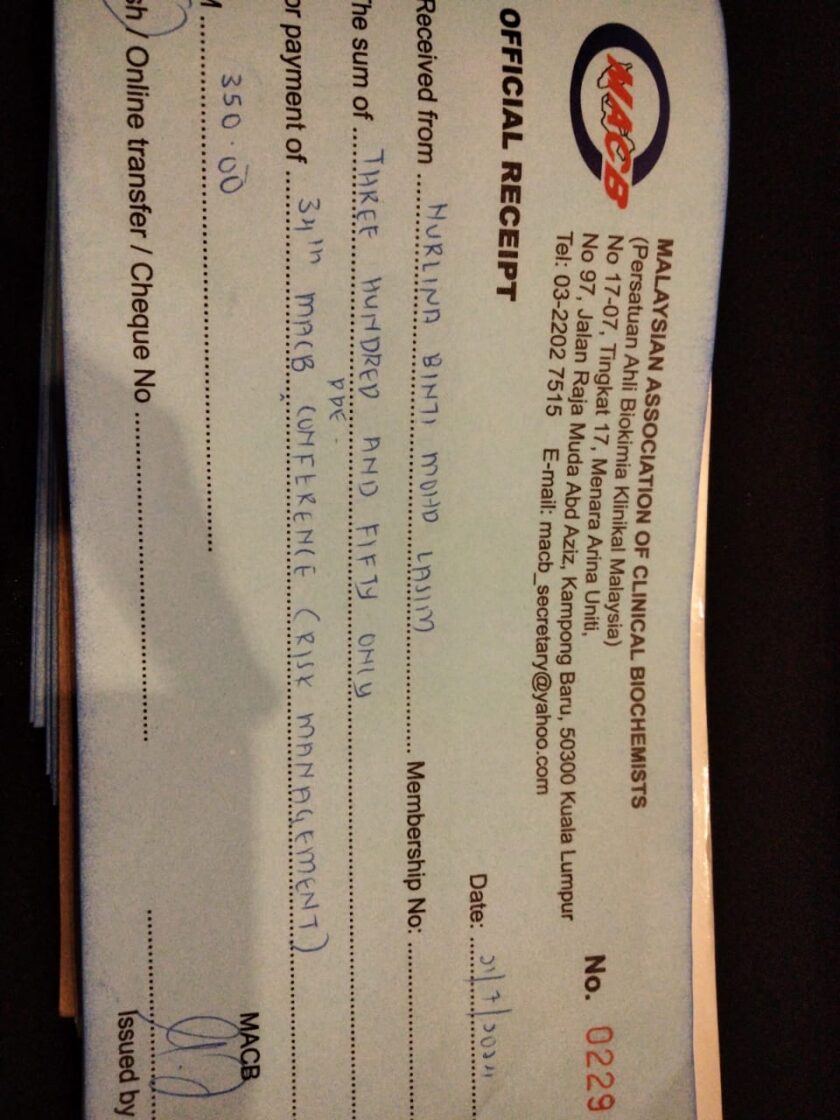 MACB
MALAYSIAN ASSOCIATION OF CLINICAL BIOCHEMISTS
(Persatuan Ahli Biokimia Klinikal Malaysia)
No 17-07, Tingkat 17, Menara Arina Uniti,
No 97, Jalan Raja Muda Abd Aziz, Kampong Baru, 50300 Kuala Lumpur
Tel: 03-2202 7515 E-mail: macb_secretary@yahoo.com
No. 0229
OFFICIAL RECEIPT
Date:
Received from NURLINA BINTI MOHD LASIM Membership No:
he sum of THREE HUNDRED AND FIFTY ONLY
PDE.
or payment of 34TH MACB CONFERENCE (RISK MANAGEMENT)
M 350.00
sh / Online transfer / Cheque No
MACB
Issued by